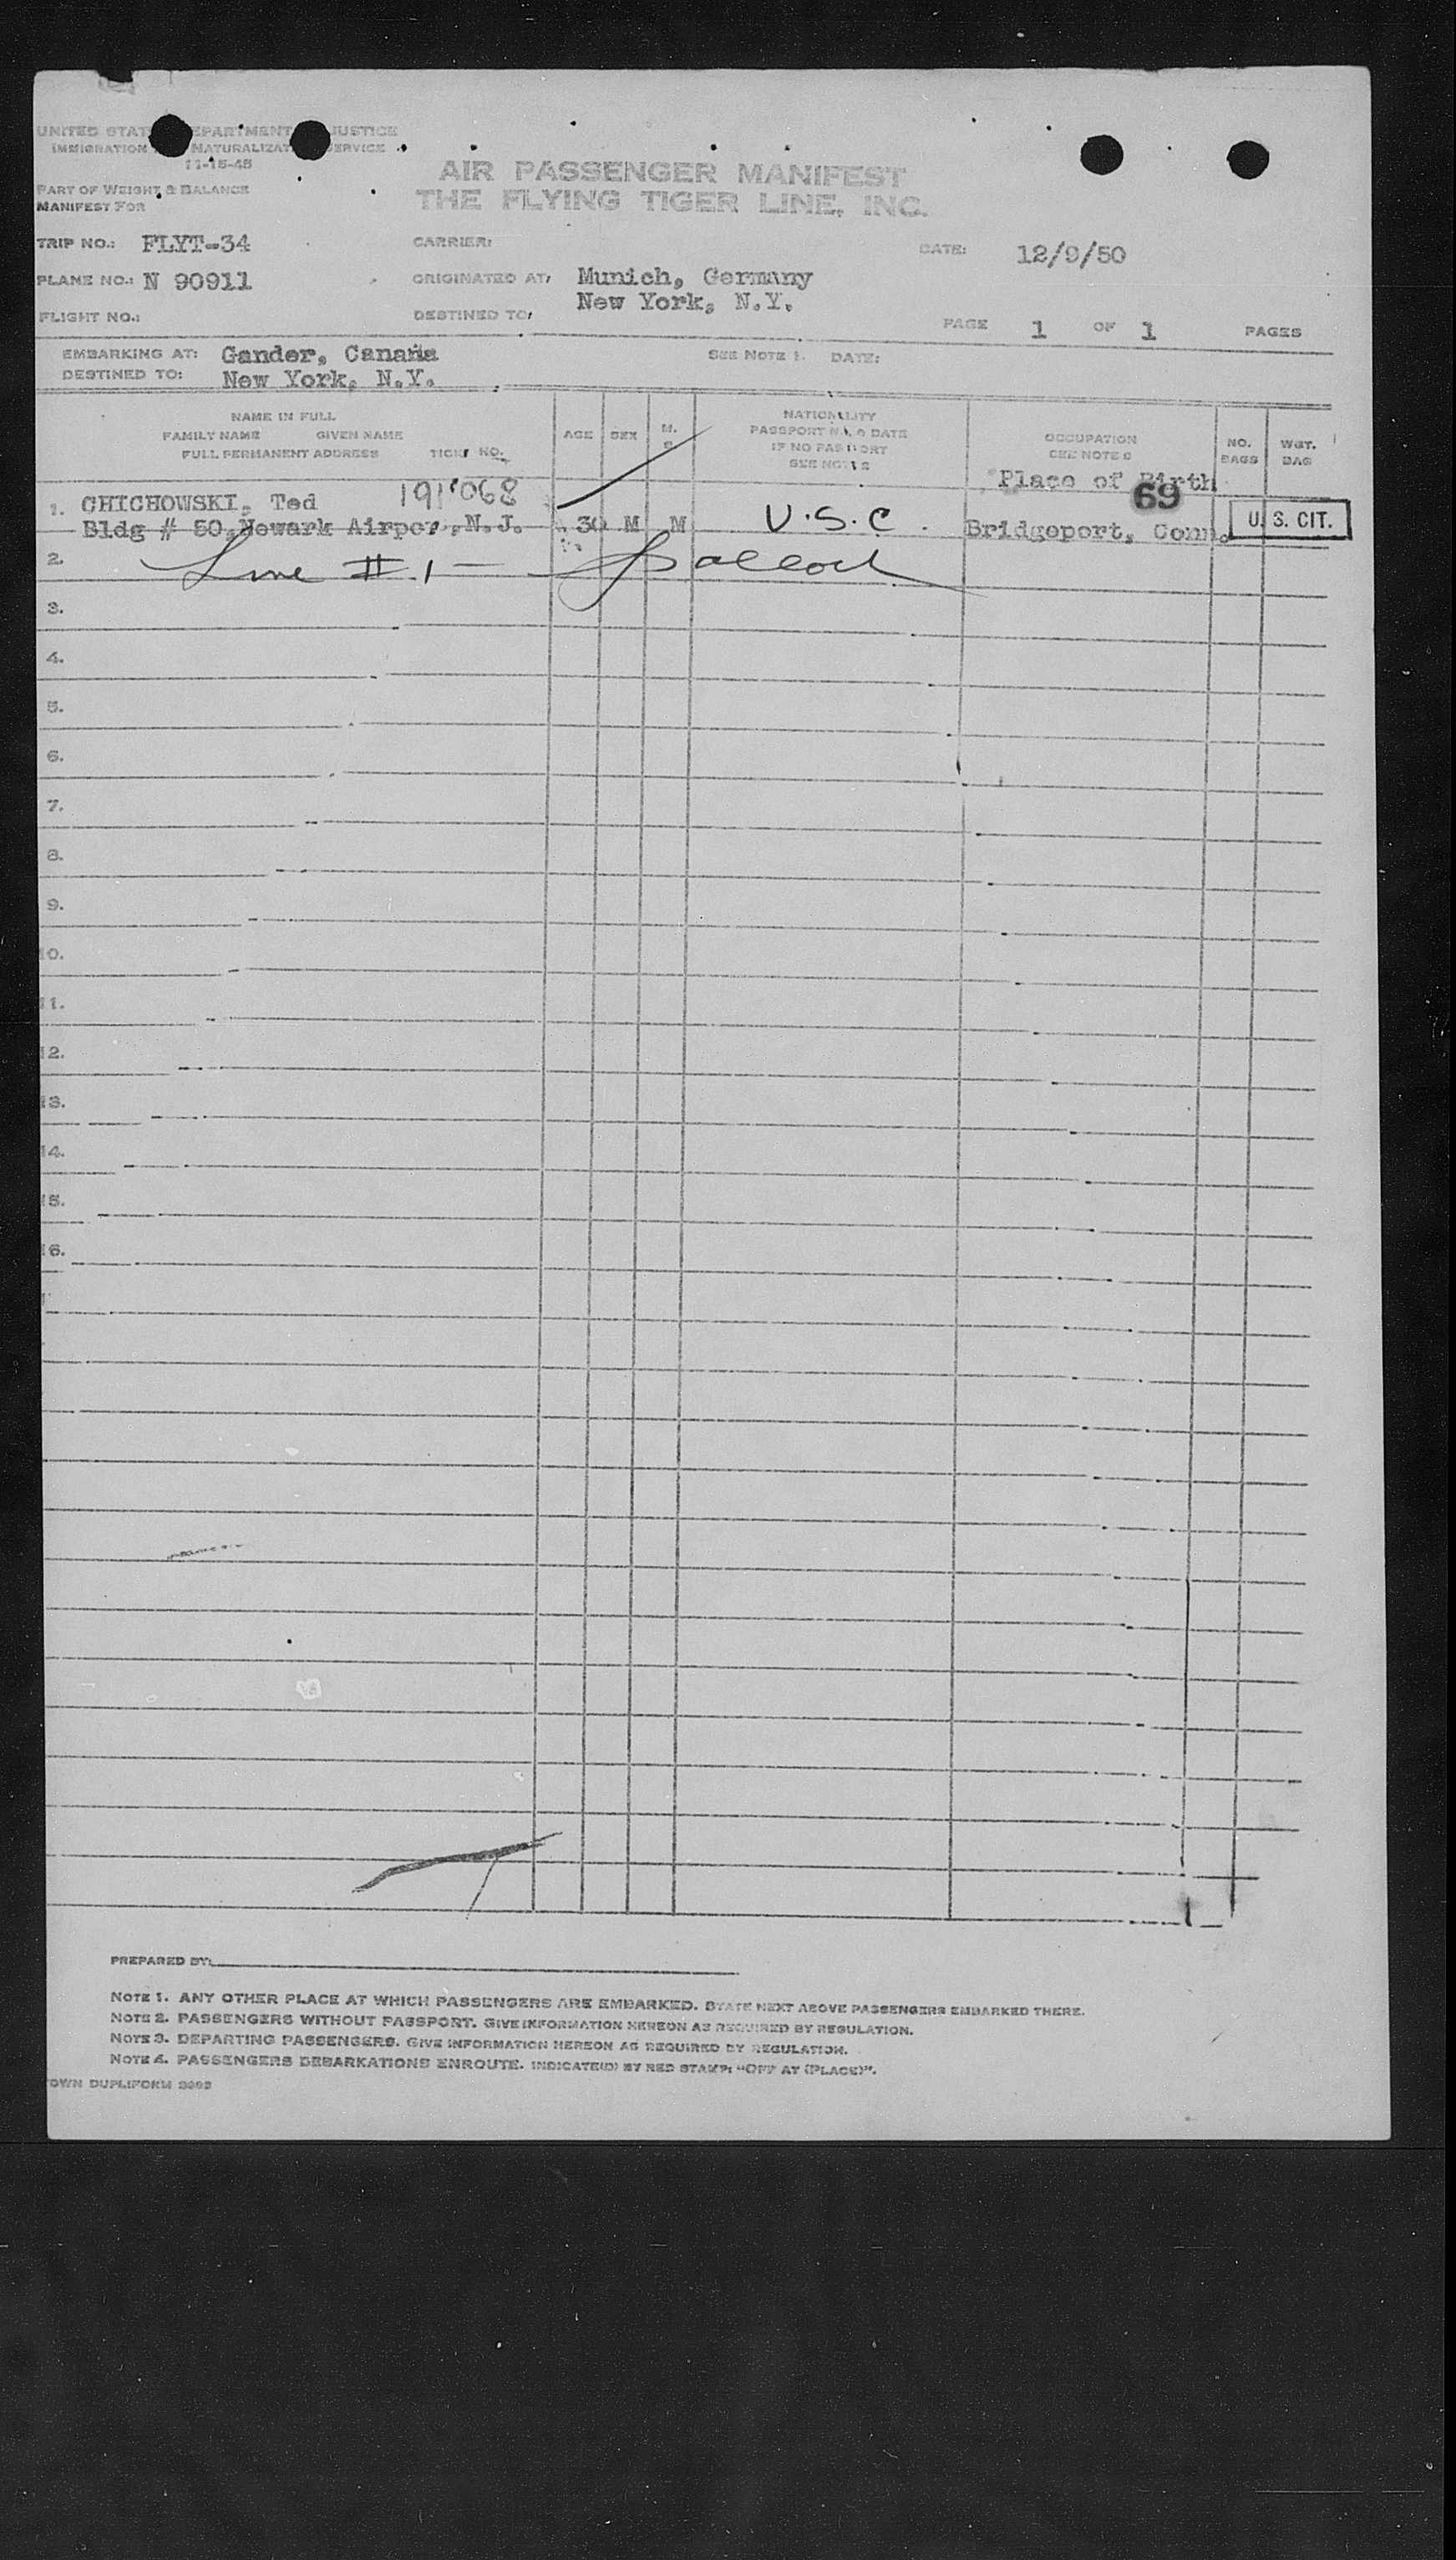 UNITED STATES DEPARTMENT JUSTICE
IMMIGRATION NATURALIZATION SERVICE
11-15-45
AIR PASSENGER MANIFEST
THE FLYING TIGER LINE, INC.
PART OF WEIGHT & BALANCE
MANIFEST FOR
TRIP NO.: FLYT-34 CARRIER: DATE: 12/9/50
PLANE NO.: N 90911 ORIGINATED AT: Munich, Germany
FLIGHT NO.: DESTINED TO: New York, N.Y. PAGE 1 OF 1 PAGES
EMBARKING AT: Gander, Canada SEE NOTE 1. DATE:
DESTINED TO: New York, N.Y.
NAME IN FULL
FAMILY NAME GIVEN NAME
FULL PERMANENT ADDRESS TICKT NO.
AGE SEX M. S
NATIONALITY
PASSPORT NO. & DATE
IF NO PASSPORT
SEE NOTE 2
OCCUPATION
SEE NOTE 3
NO. BAGS
WGT. BAG
Place of Birth
69
1. CHICHOWSKI, Ted 191068
Bldg # 50, Newark Airport, N.J. 30 M M U.S.C. Bridgeport, Conn. U.S. CIT.
2. Line # 1 —
3.
4.
5.
6.
7.
8.
9.
10.
11.
12.
13.
14.
15.
16.
PREPARED BY:
NOTE 1. ANY OTHER PLACE AT WHICH PASSENGERS ARE EMBARKED. STATE NEXT ABOVE PASSENGERS EMBARKED THERE.
NOTE 2. PASSENGERS WITHOUT PASSPORT. GIVE INFORMATION HEREON AS REQUIRED BY REGULATION.
NOTE 3. DEPARTING PASSENGERS. GIVE INFORMATION HEREON AS REQUIRED BY REGULATION.
NOTE 4. PASSENGERS DEBARKATIONS ENROUTE. INDICATE(D) BY RED STAMP: "OFF AT (PLACE)".
OWN DUPLIFORM